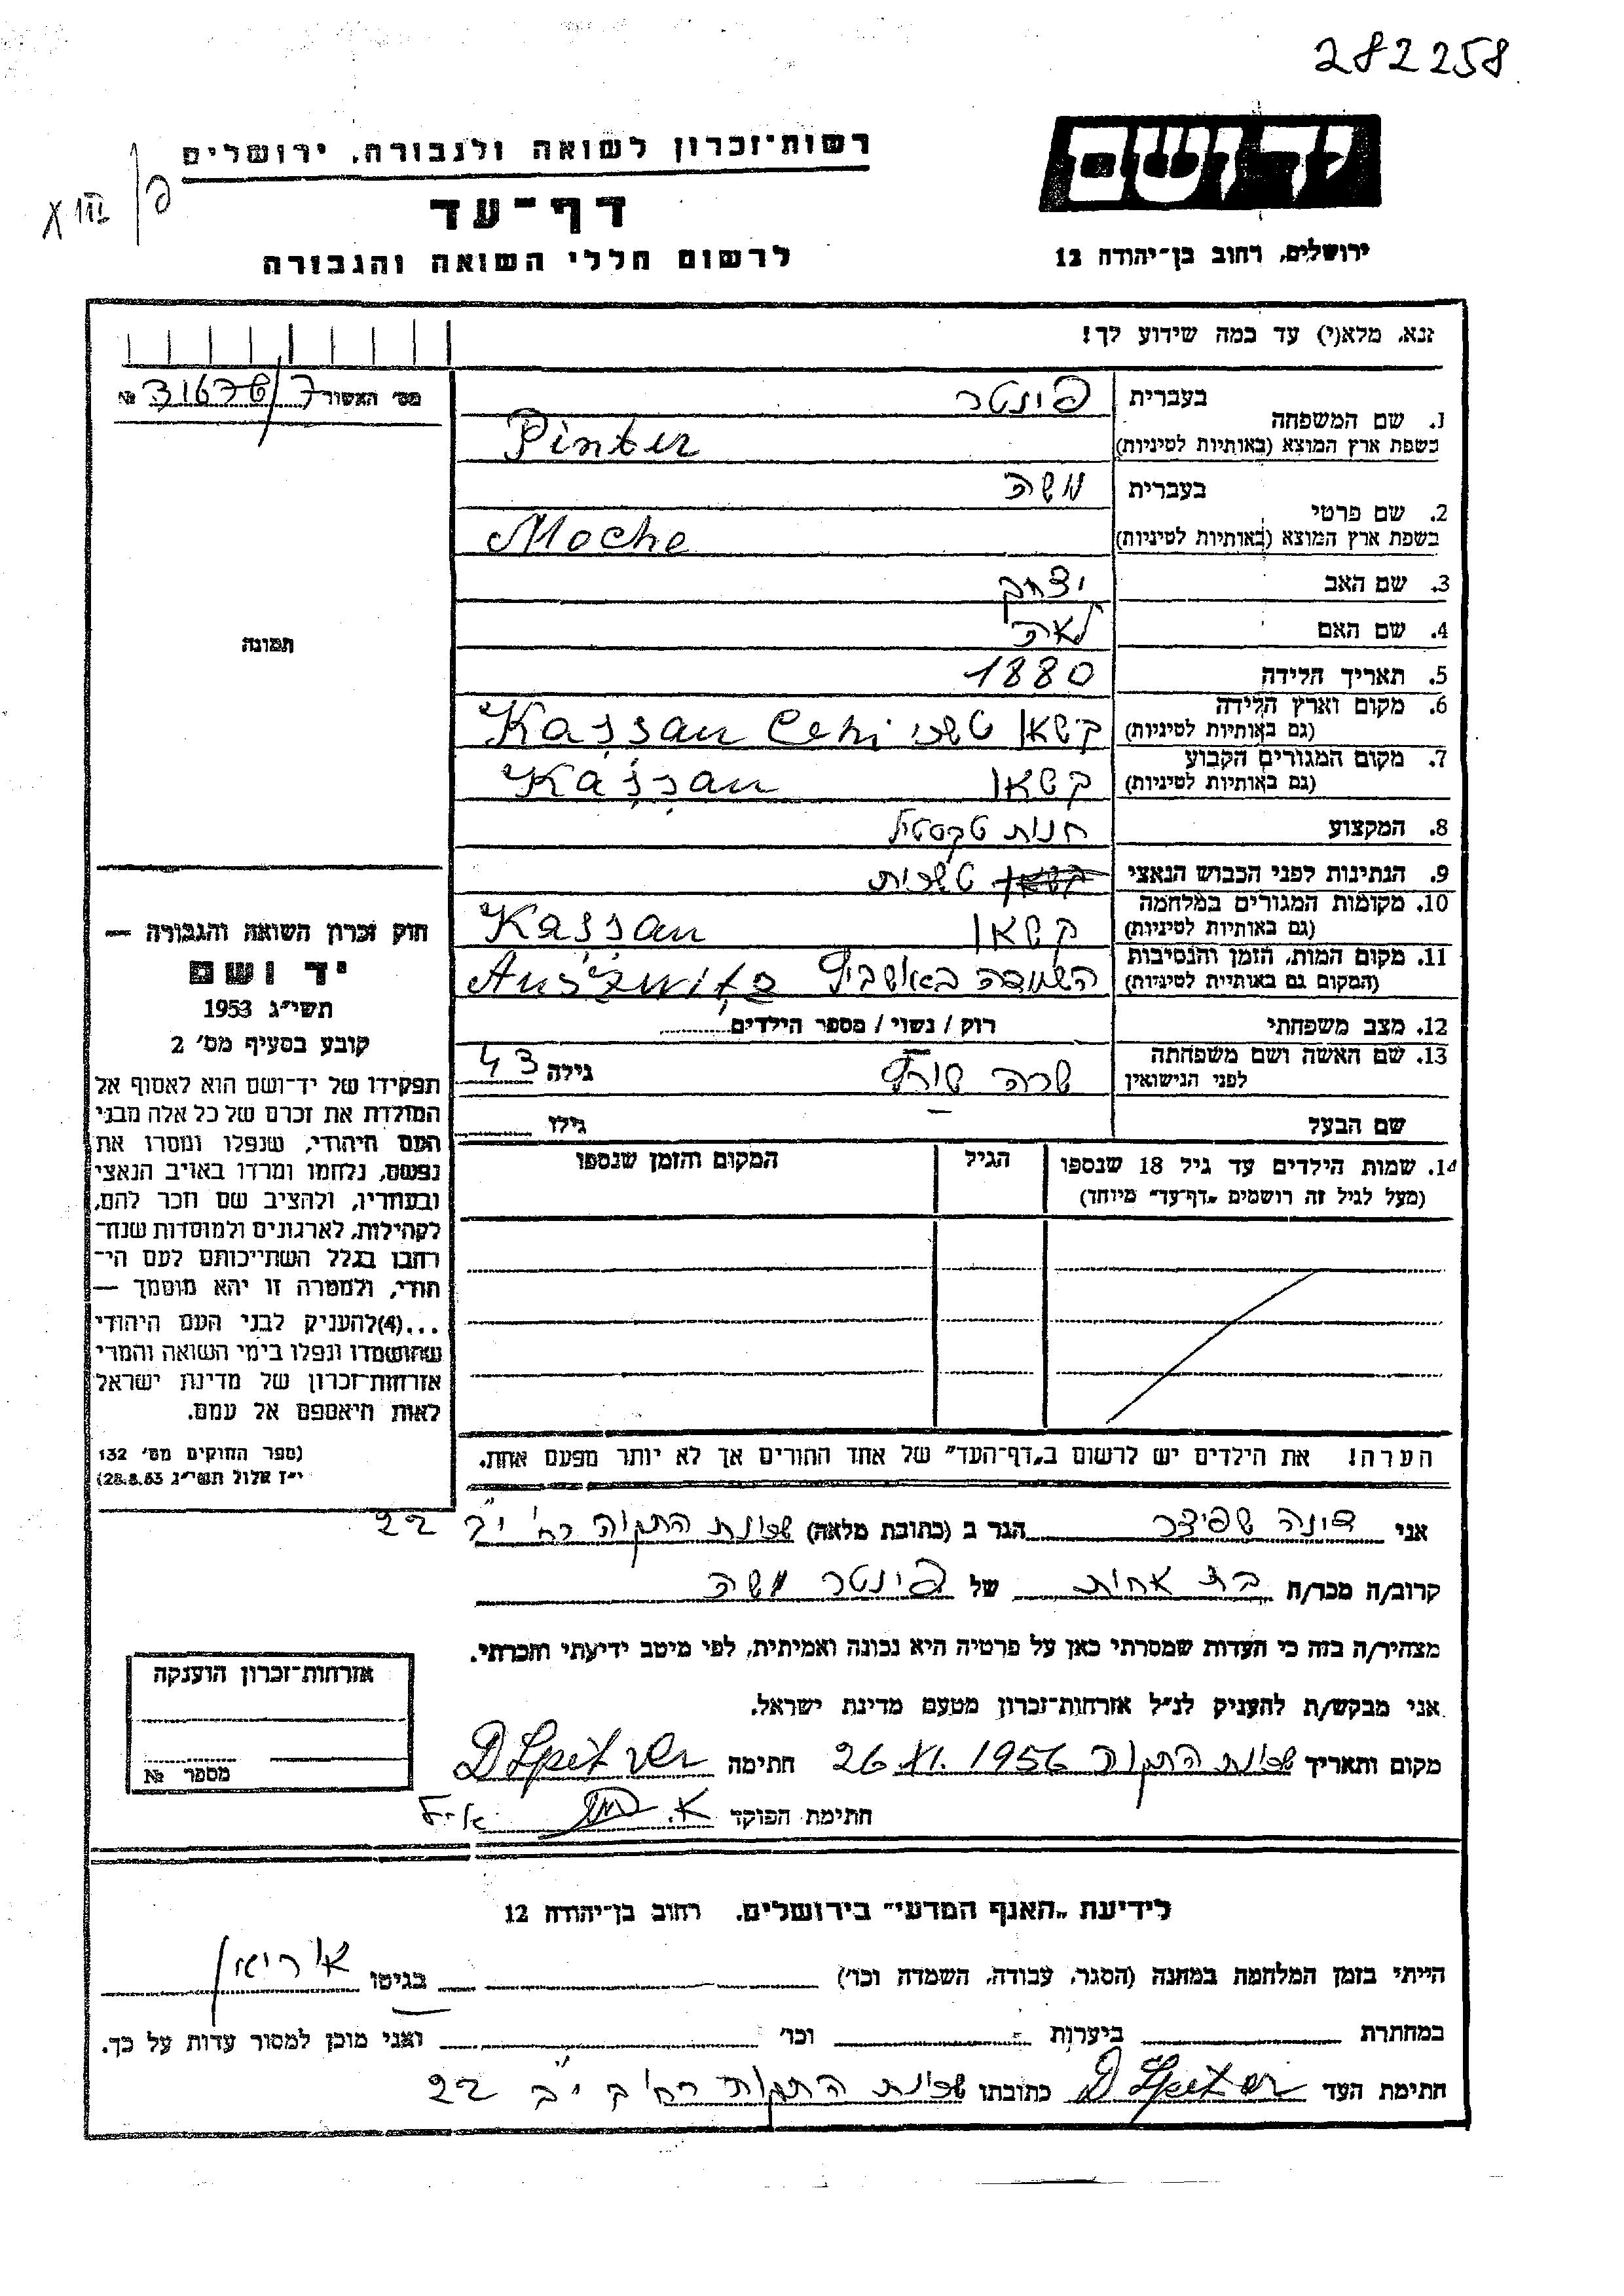 282258
יד ושם
רשות־זכרון לשואה ולגבורה, ירושלים
דף־עד
לרשום חללי השואה והגבורה
ירושלים, רחוב בן־יהודה 12
XIII / פ
נא, מלא(י) עד כמה שידוע לך!
מס׳ האשור 31678/7 №
1. שם המשפחה
בעברית פינטר
בשפת ארץ המוצא (באותיות לטיניות) Pinter
2. שם פרטי
בעברית משה
בשפת ארץ המוצא (באותיות לטיניות) Moche
3. שם האב יצחק
4. שם האם לאה
5. תאריך הלידה 1880
6. מקום וארץ הלידה
(גם באותיות לטיניות) קשאן טשכי Kaşşau Cehi
7. מקום המגורים הקבוע
(גם באותיות לטיניות) קשאן Kaşşau
8. המקצוע חנות טקסטיל
9. הנתינות לפני הכבוש הנאצי קשאן טשכית
10. מקומות המגורים במלחמה
(גם באותיות לטיניות) קשאן Kaşşau
11. מקום המות, הזמן והנסיבות
(המקום גם באותיות לטיניות) השמדה באושביץ Auszwitz
12. מצב משפחתי רוק / נשוי / מספר הילדים
13. שם האשה ושם משפחתה
לפני הנישואין שרה גילה 43
שם הבעל – גילו
14. שמות הילדים עד גיל 18 שנספו
(מעל לגיל זה רושמים „דף־עד" מיוחד)
הגיל
המקום והזמן שנספו
הערה! את הילדים יש לרשום ב„דף־העד" של אחד ההורים אך לא יותר מפעם אחת.
תמונה
חוק זכרון השואה והגבורה —
יד ושם
תשי״ג 1953
קובע בסעיף מס׳ 2
תפקידו של יד־ושם הוא לאסוף אל
המולדת את זכרם של כל אלה מבני
העם היהודי, שנפלו ומסרו את
נפשם, נלחמו ומרדו באויב הנאצי
ובעוזריו, ולהציב שם וזכר להם,
לקהילות, לארגונים ולמוסדות שנח־
רבו בגלל השתייכותם לעם הי־
הודי, ולמטרה זו יהא מוסמך —
...(4)להעניק לבני העם היהודי
שהושמדו ונפלו בימי השואה והמרי
אזרחות־זכרון של מדינת ישראל
לאות היאספם אל עמם.
(ספר החוקים מס׳ 132
י״ז אלול תשי״ג 28.8.53)
אני דינה שפיצר הגר ב (כתובת מלאה) שכונת התקוה רח׳ י״ב 22
קרוב/ה מכר/ה בת אחות של פינטר משה
מצהיר/ה בזה כי העדות שמסרתי כאן על פרטיה היא נכונה ואמיתית, לפי מיטב ידיעתי והכרתי.
אני מבקש/ת להעניק לנ״ל אזרחות־זכרון מטעם מדינת ישראל.
מקום ותאריך שכונת התקוה 26.XI.1956 חתימה D Spitzer
חתימת הפוקד
אזרחות־זכרון הוענקה
מספר №
לידיעת „האגף המדעי" בירושלים, רחוב בן־יהודה 12
הייתי בזמן המלחמה במחנה (הסגר, עבודה, השמדה וכו׳) בגיטו
במחתרת ביערות וכו׳ ואני מוכן למסור עדות על כך.
חתימת העד D Spitzer כתובתו שכונת התקוה רחוב י״ב 22